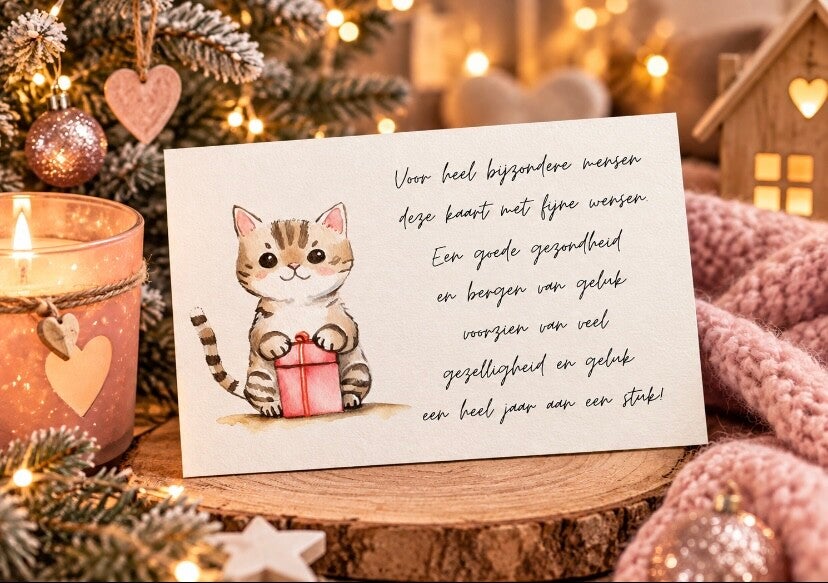 Voor heel bijzondere mensen
deze kaart met fijne wensen.
Een goede gezondheid
en bergen van geluk
voorzien van veel
gezelligheid en geluk
een heel jaar aan een stuk!